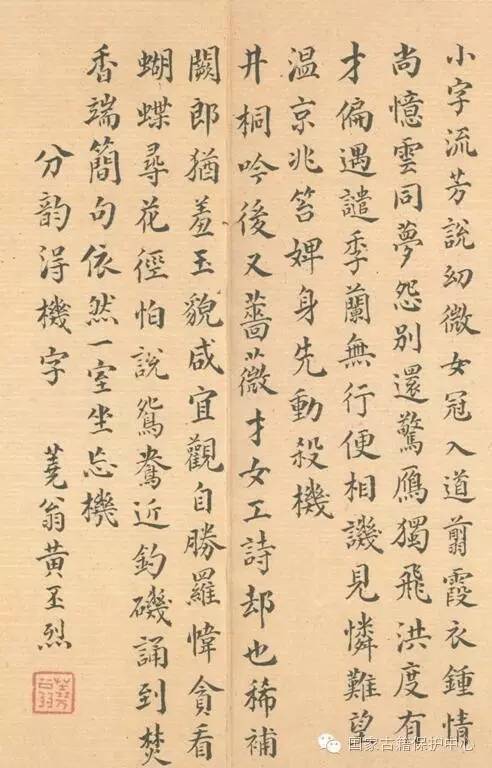 小字流芳說幼微女冠入道翦霞衣鍾情
尚憶雲同夢怨別還驚鴈獨飛洪度有
才偏遇譴季蘭無行便相譏見憐難望
温京兆笞婢身先動殺機
井桐吟後又薔薇才女工詩却也稀補
闕郎猶羞玉貌咸宜觀自勝羅幃貪看
蝴蝶尋花徑怕說鴛鴦近釣磯誦到焚
香端簡句依然一室坐忘機
分韵得機字 蕘翁黃丕烈
国家古籍保护中心